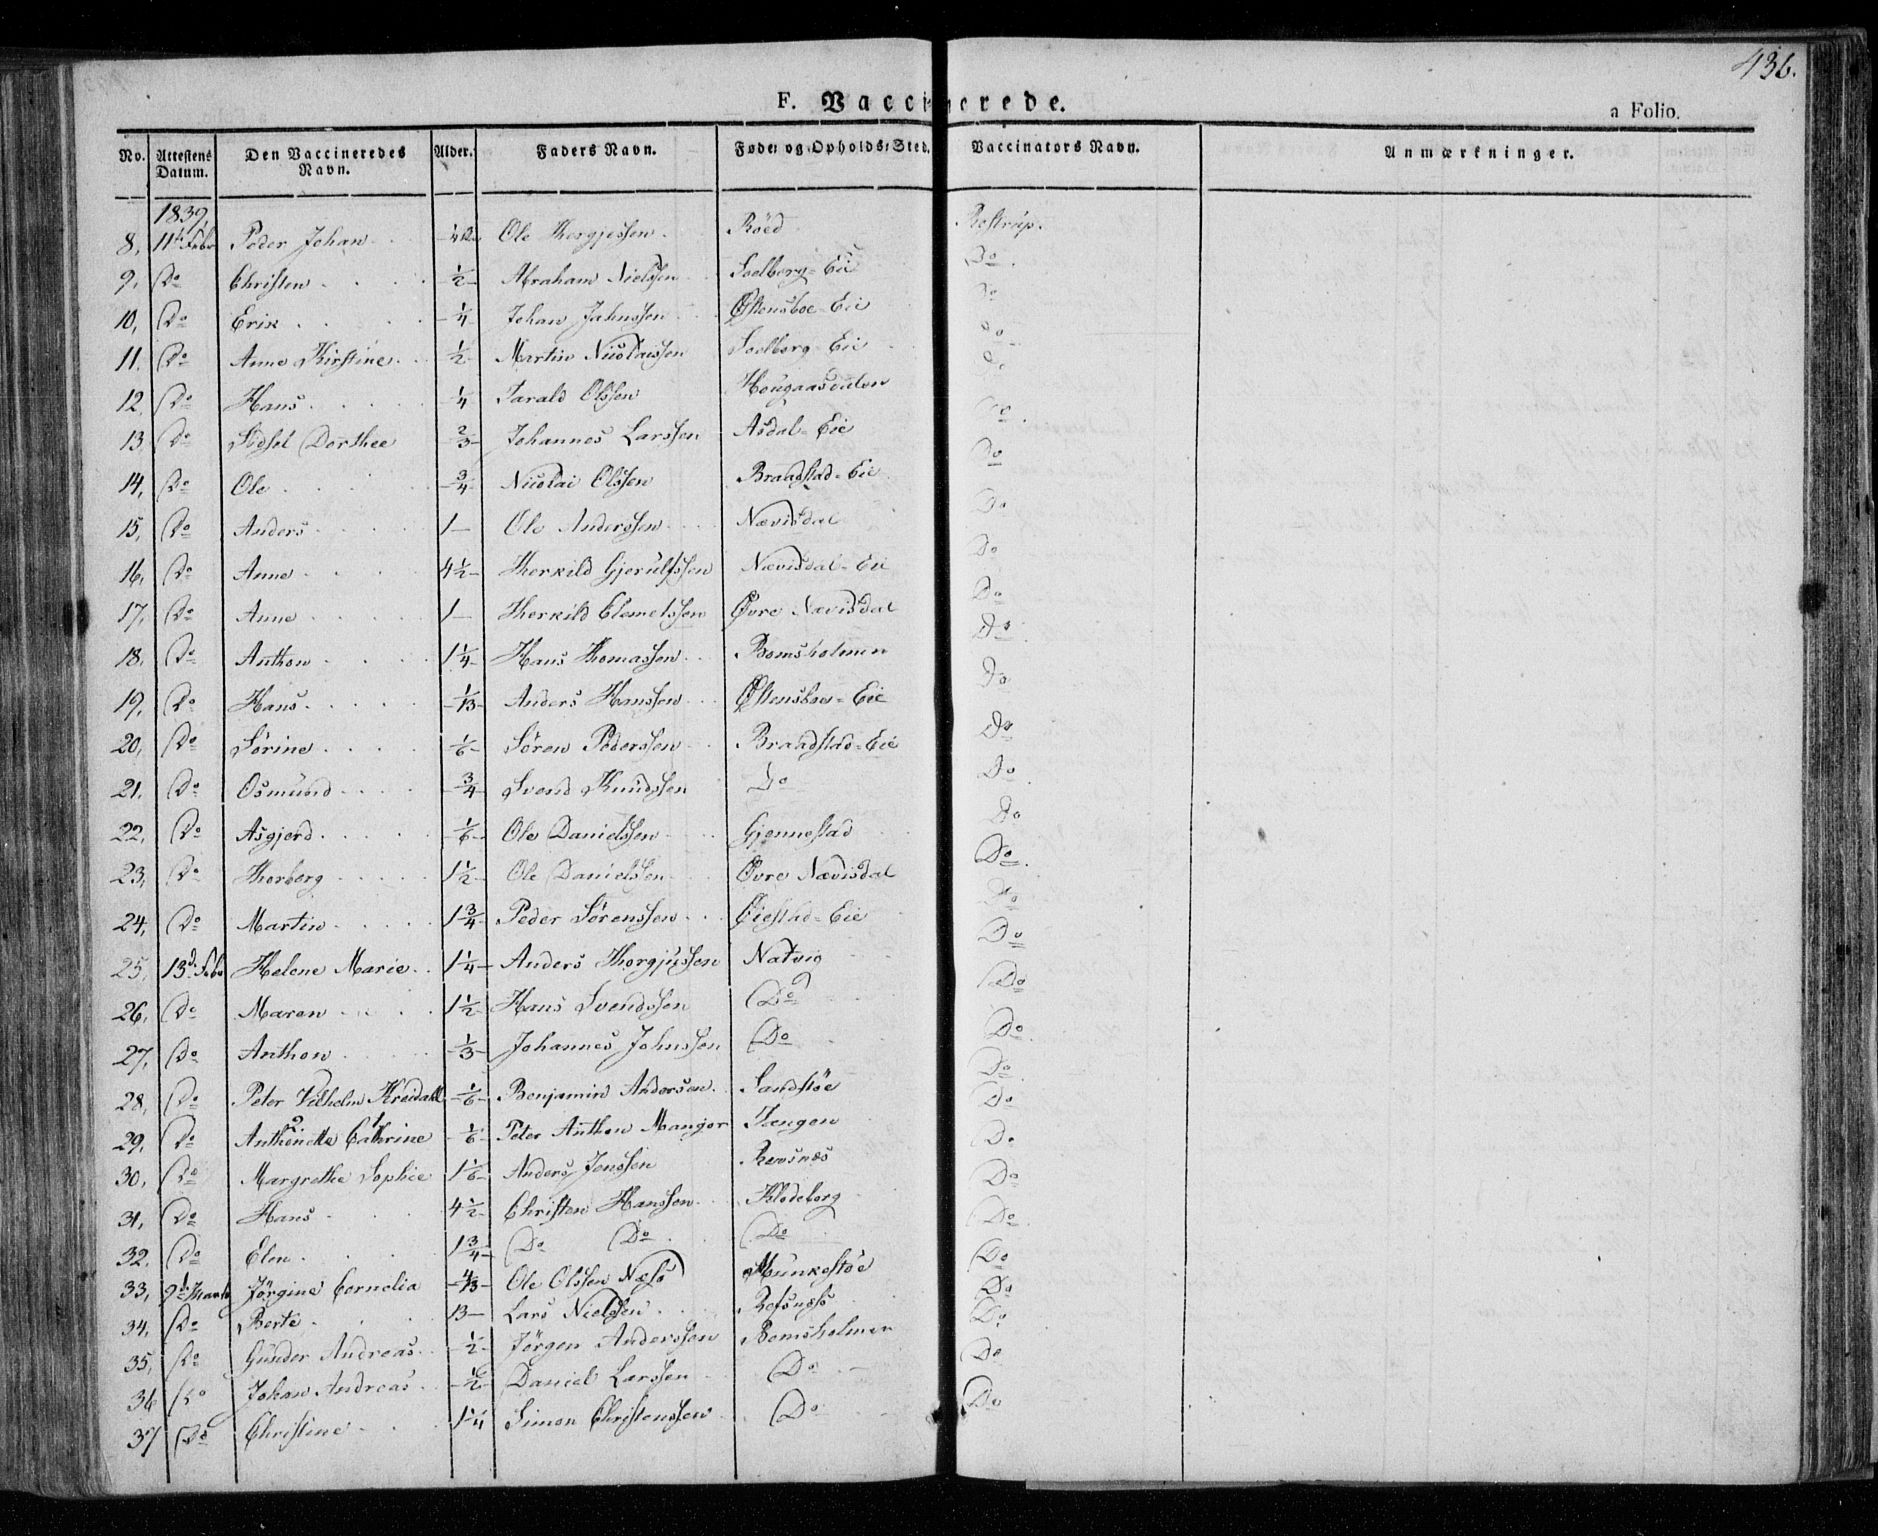 436.
F. Vaccinerede.
a Folio.
No. Attestens Datum. Den Vaccineredes Navn. Alder. Faders Navn. Føde- og Opholds-Sted. Vaccinators Navn. Anmærkninger.
1839
8, 11te Febr Peder Johan Ole Thorgjessen Röed Rostrup.
9, Do Christen 1/2 Abraham Nielssen Soelberg-Eie Do
10, Do Erik 1/4 Johan Jahnssen Østensboe-Eie Do
11, Do Anne Kirstine 1/2 Martin Nicolaissen Soelberg-Eie Do
12, Do Hans 1/4 Tarald Olssen Hougaasdalen Do
13 Do Sidsel Dorthee 2/3 Johannes Larssen Asdal-Eie Do
14, Do Ole 3/4 Nicolai Olssen Braadstad-Eie Do
15, Do Anders 1 Ole Anderssen Nævisdal Do
16, Do Anne 4 1/2 Therkild Gjerulfssen Nævisdal-Eie Do
17, Do Anne 1 Therkild Clemetssen Øvre Nævisdal Do
18, Do Anthon 1 1/4 Hans Thomassen Bomsholmen Do
19, Do Hans 1/13 Anders Hanssen Østensboe-Eie Do
20, Do Sørine 1/6 Søren Pederssen Braadstad-Eie Do
21, Do Osmund 3/4 Svend Knudssen Do Do
22, Do Asgjerd 1/6 Ole Danielssen Gjennestad Do
23, Do Thorberg 1 1/2 Ole Danielssen Øvre Nævisdal Do
24, Do Martin 1 3/4 Peder Sørenssen Øiestad-Eie Do
25, 13d Febr Helene Marie 1 1/4 Anders Thorgjussen Natvig Do
26, Do Maren 1 1/2 Hans Svendssen Do Do
27, Do Anthon 1/3 Johannes Johnssen Do Do
28, Do Peter Vilhelm Kreidahl 1/6 Benjamin Andersen Sandstöe Do
29, Do Anthonette Cathrine 1/6 Peter Anthon Mangor Tangen Do
30, Do Margrethe Sophie 1 1/6 Anders Jenssen Revsnæs Do
31, Do Hans 4 1/2 Christen Hanssen Klodeborg Do
32, Do Elen 1 3/4 Do Do Do Do
33, 9de Marts Jörgine Cornelia 4/13 Ole Olssen Næss Munkestöe Do
34, Do Berte 13 Lars Nielssen Refsnæss Do
35, Do Gunder Andreas 1/2 Jörgen Anderssen Bomsholmen Do
36 Do Johan Andreas 1/2 Daniel Larssen Do Do
37 Do Christine 1 1/4 Simon Christenssen Do Do